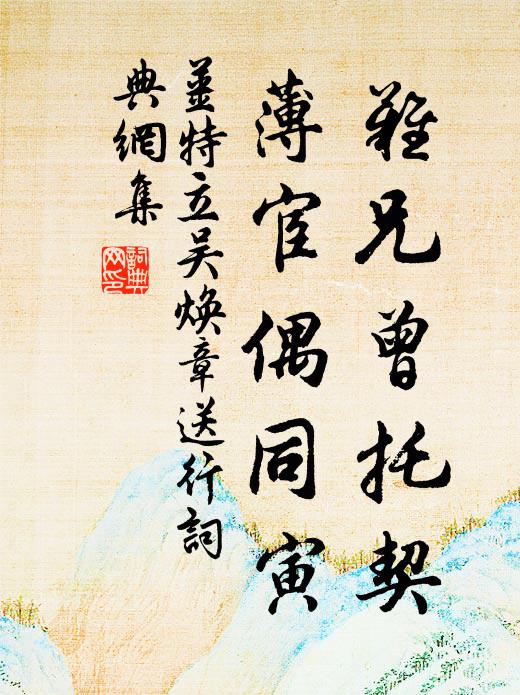 難兄曾托契
薄宦偶同寅
姜特立吴焕章送行詞
典網集
詞典网印